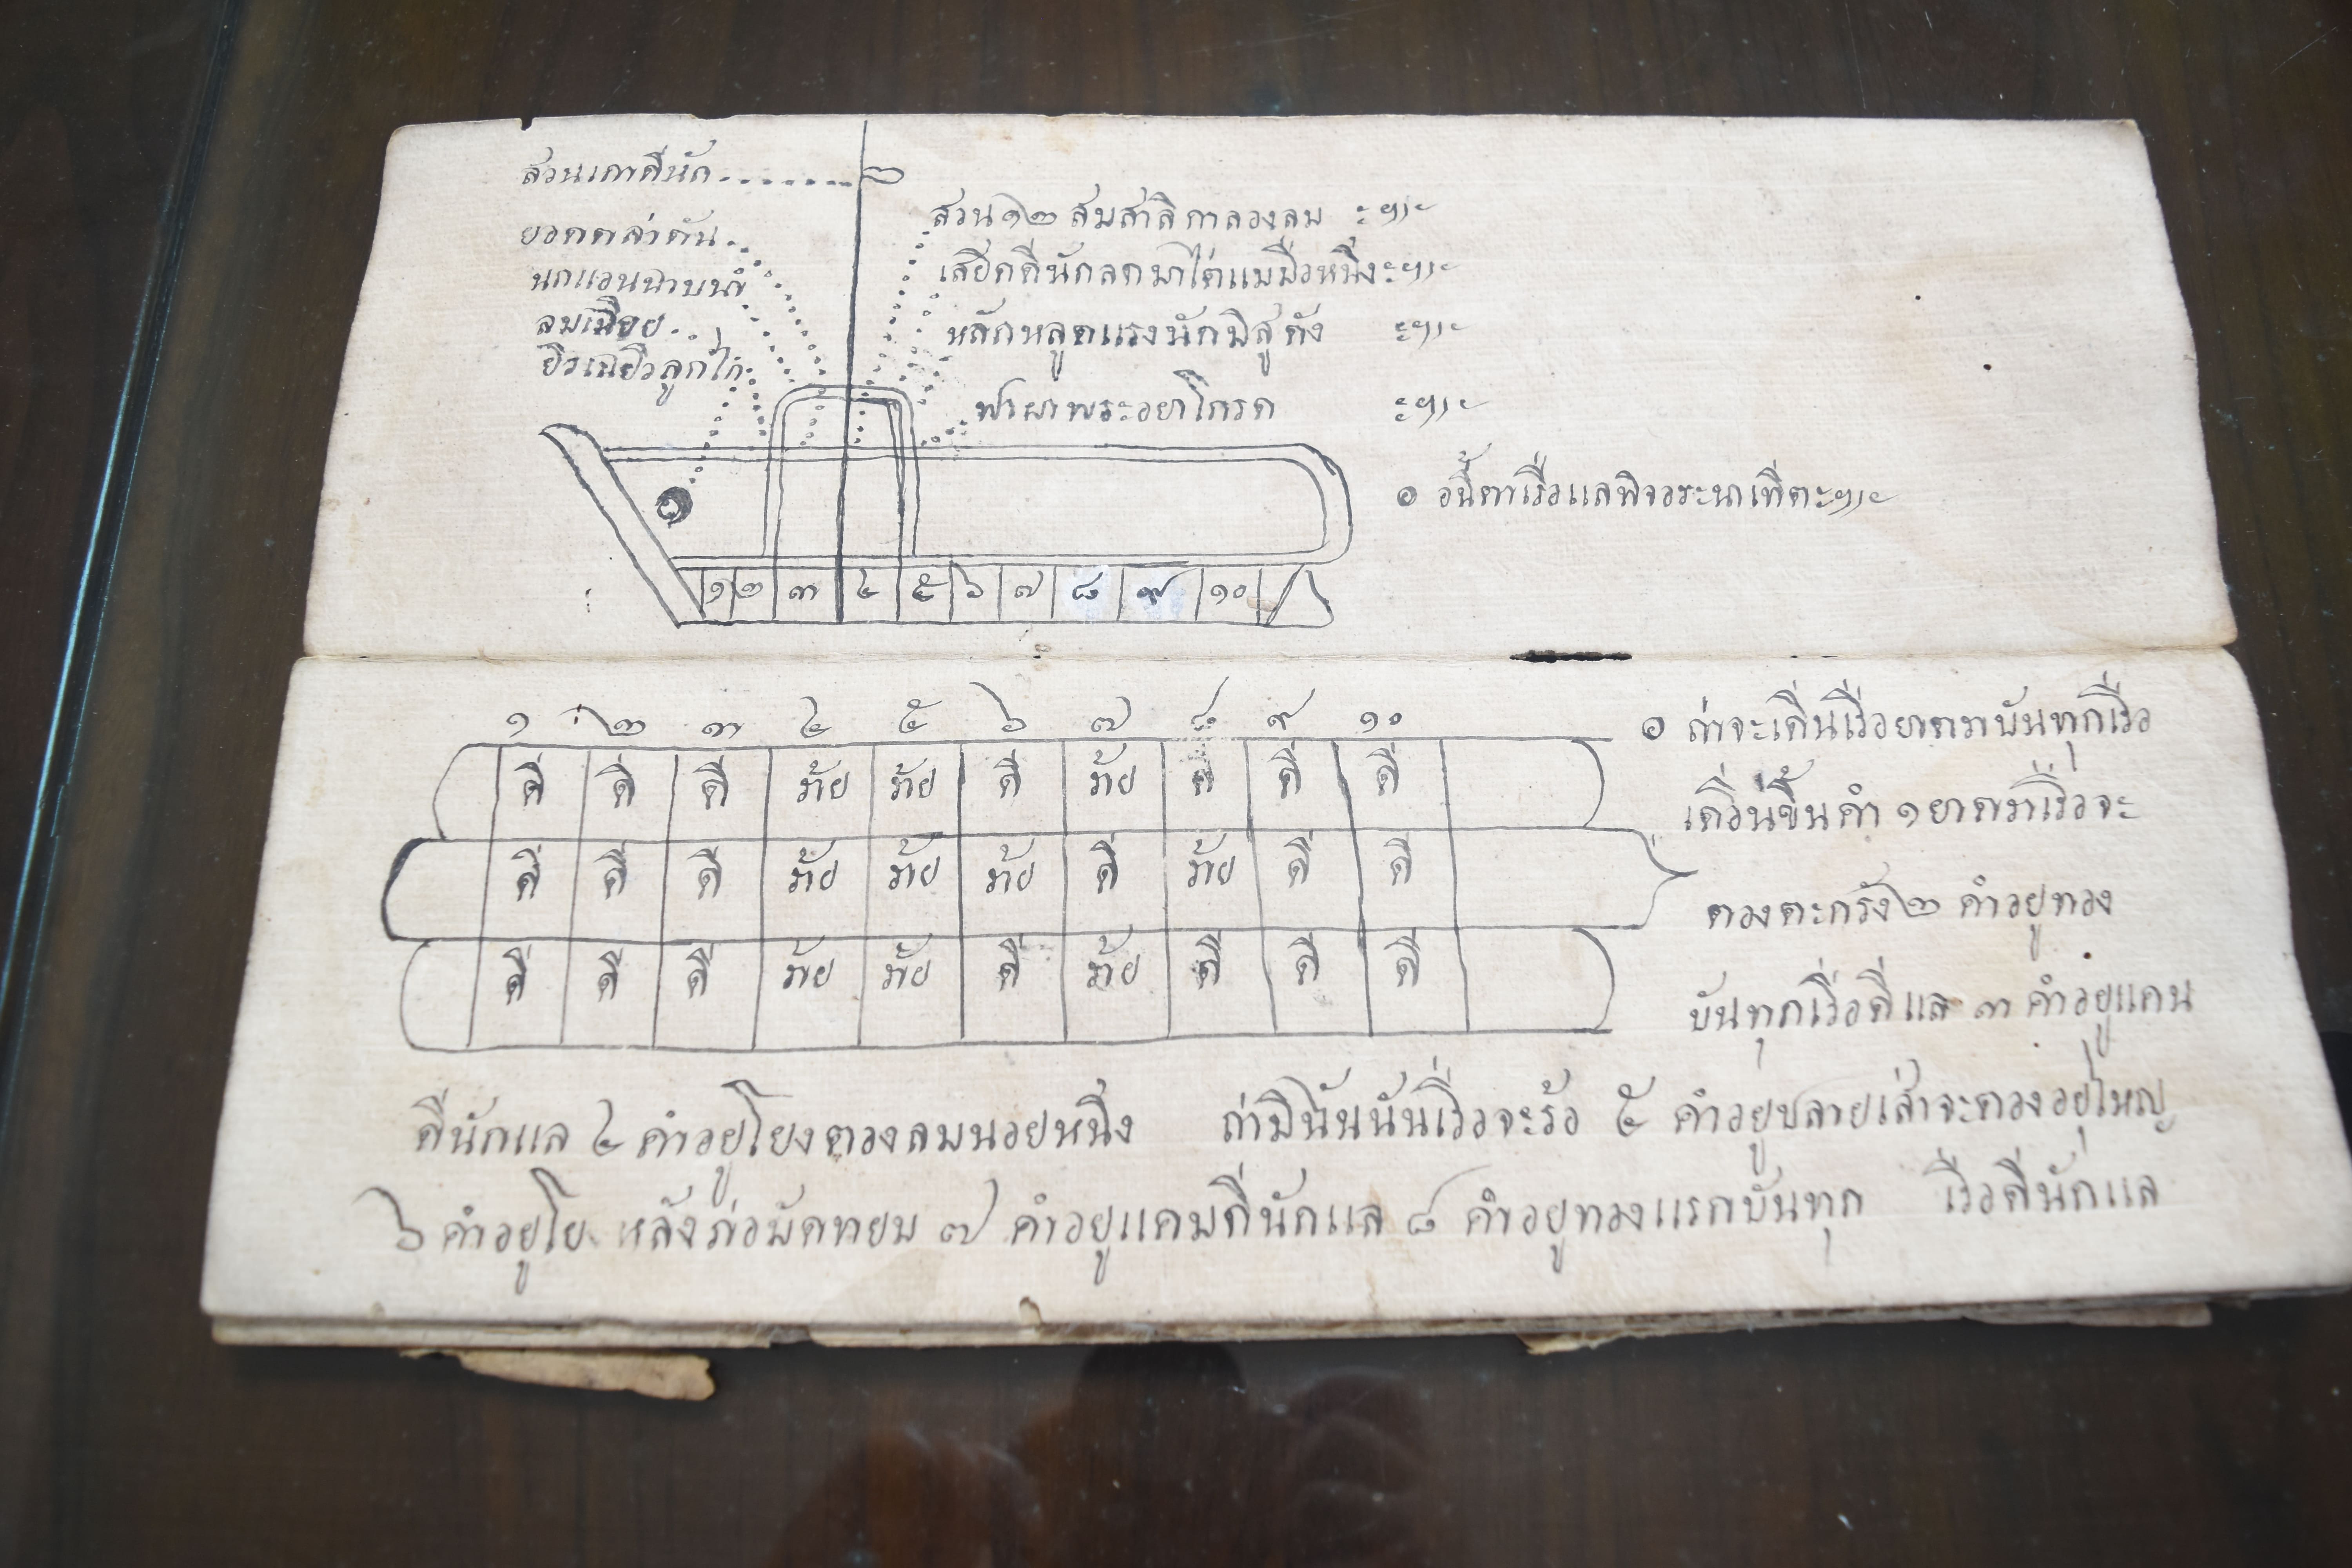 สวนเกาดีนัก........
ยอดตลำตัน..
นกแอนฉาบนำ
ลมเฉียย..
ยิวเฉยิวลูกไก่
สวน ๑๒ สมสาลิกาลองลม
เสยีดดีนักลดมาไต่แมมือหนึ่ง
หลักหลูดแรงนักมิสูดัง
ฟาผาพระอยาโกรด
๏ อนี้ตำเรือแลพิจอระนาเทีต
๑ ๒ ๓ ๔ ๕ ๖ ๗ ๘ ๙ ๑๐
๑ ๒ ๓ ๔ ๕ ๖ ๗ ๘ ๙ ๑๐
ดี ดี ดี ร้าย ร้าย ดี ร้าย ดี ดี ดี
ดี ดี ดี ร้าย ร้าย ร้าย ดี ร้าย ดี ดี
ดี ดี ดี ร้าย ร้าย ดี ร้าย ดี ดี ดี
๏ ถ่าจะเดินเรือยาตราบันทุกเรือ
เดือนขึ้นคำ ๑ ยาตราเรือจะ
ตองตะกรัง ๒ คำอยูทอง
บันทุกเรือดีแล ๓ คำอยูแคน
ดีนักแล ๔ คำอยูโยงตองลมนอยหนึ่ง ถ่ามินันนันเรือจะร้อ ๕ คำอยูปลายเส่าจะตองอยุไหญ
๖ คำอยูโย หลังรอมัดทยบ ๗ คำอยูแคมดีนักแล ๘ คำอยูทองแรกบันทุก เรือดีนักแล